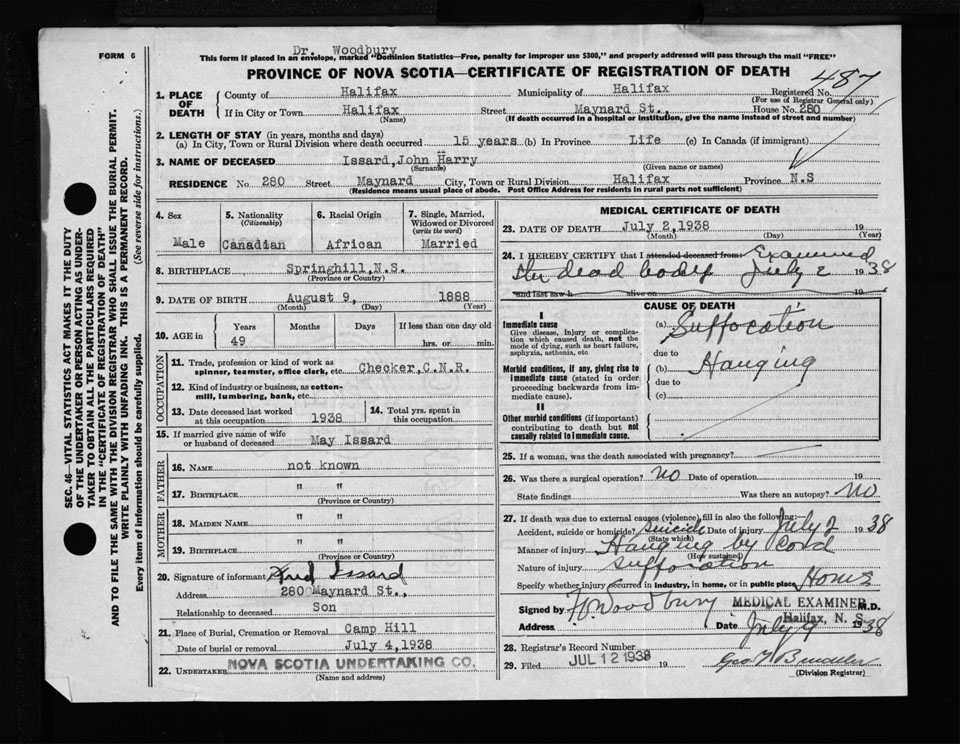 Dr. Woodbury
FORM 6
This form if placed in an envelope, marked "Dominion Statistics—Free, penalty for improper use $300," and properly addressed will pass through the mail "FREE"
PROVINCE OF NOVA SCOTIA—CERTIFICATE OF REGISTRATION OF DEATH
487
1. PLACE OF DEATH
County of Halifax Municipality of Halifax Registered No.
(For use of Registrar General only)
If in City or Town Halifax Street Maynard St., House No. 280
(Name) (If death occurred in a hospital or institution, give the name instead of street and number)
2. LENGTH OF STAY (in years, months and days)
(a) In City, Town or Rural Division where death occurred 15 years (b) In Province Life (c) In Canada (if immigrant)
3. NAME OF DECEASED Issard, John Harry
(Surname) (Given name or names)
RESIDENCE No. 280 Street Maynard City, Town or Rural Division Halifax Province N.S
(Residence means usual place of abode. Post Office Address for residents in rural parts not sufficient)
4. Sex
Male
5. Nationality
(Citizenship)
Canadian
6. Racial Origin
African
7. Single, Married, Widowed or Divorced
(write the word)
Married
8. BIRTHPLACE Springhill, N.S.
(Province or Country)
9. DATE OF BIRTH August 9, 1888
(Month) (Day) (Year)
10. AGE in
Years Months Days If less than one day old
49 hrs. or min.
OCCUPATION
11. Trade, profession or kind of work as
spinner, teamster, office clerk, etc. Checker, C.N.R.
12. Kind of industry or business, as cotton-
mill, lumbering, bank, etc.
13. Date deceased last worked
at this occupation 1938
14. Total yrs. spent in
this occupation
15. If married give name of wife
or husband of deceased May Issard
FATHER
16. NAME not known
17. BIRTHPLACE " "
(Province or Country)
MOTHER
18. MAIDEN NAME " "
19. BIRTHPLACE " "
(Province or Country)
20. Signature of informant Issard
Address 280 Maynard St.,
Relationship to deceased Son
21. Place of Burial, Cremation or Removal Camp Hill
Date of burial or removal July 4, 1938
22. UNDERTAKER NOVA SCOTIA UNDERTAKING CO.
(Name and address)
MEDICAL CERTIFICATE OF DEATH
23. DATE OF DEATH July 2, 1938 19
(Month) (Day) (Year)
24. I HEREBY CERTIFY that I attended deceased from: Examined
the dead body July 2 1938
and last saw h alive on 19
CAUSE OF DEATH
I
Immediate cause
Give disease, injury or complica-
tion which caused death, not the
mode of dying, such as heart failure,
asphyxia, asthenia, etc
(a) Suffocation
due to
Morbid conditions, if any, giving rise to
immediate cause (stated in order
proceeding backwards from im-
mediate cause).
(b) Hanging
due to
(c)
II
Other morbid conditions (if important)
contributing to death but not
causally related to immediate cause.
25. If a woman, was the death associated with pregnancy?
26. Was there a surgical operation? No Date of operation 19
State findings Was there an autopsy? No
27. If death was due to external causes (violence) fill in also the following:
Accident, suicide or homicide? Suicide Date of injury July 2 1938
(State which)
Manner of injury Hanging by Cord
(How sustained)
Nature of injury Suffocation
Specify whether injury occurred in industry, in home, or in public place Home
Signed by Woodbury MEDICAL EXAMINER M.D.
Halifax, N. S.
Address Date July 9 1938
28. Registrar's Record Number
29. Filed JUL 12 1938 19
(Division Registrar)
SEC. 46—VITAL STATISTICS ACT MAKES IT THE DUTY
OF THE UNDERTAKER OR PERSON ACTING AS UNDER-
TAKER TO OBTAIN ALL THE PARTICULARS REQUIRED
IN THE "CERTIFICATE OF REGISTRATION OF DEATH"
AND TO FILE THE SAME WITH THE DIVISION REGISTRAR WHO SHALL ISSUE THE BURIAL PERMIT.
WRITE PLAINLY WITH UNFADING INK. THIS IS A PERMANENT RECORD.
Every item of information should be carefully supplied. (See reverse side for instructions.)